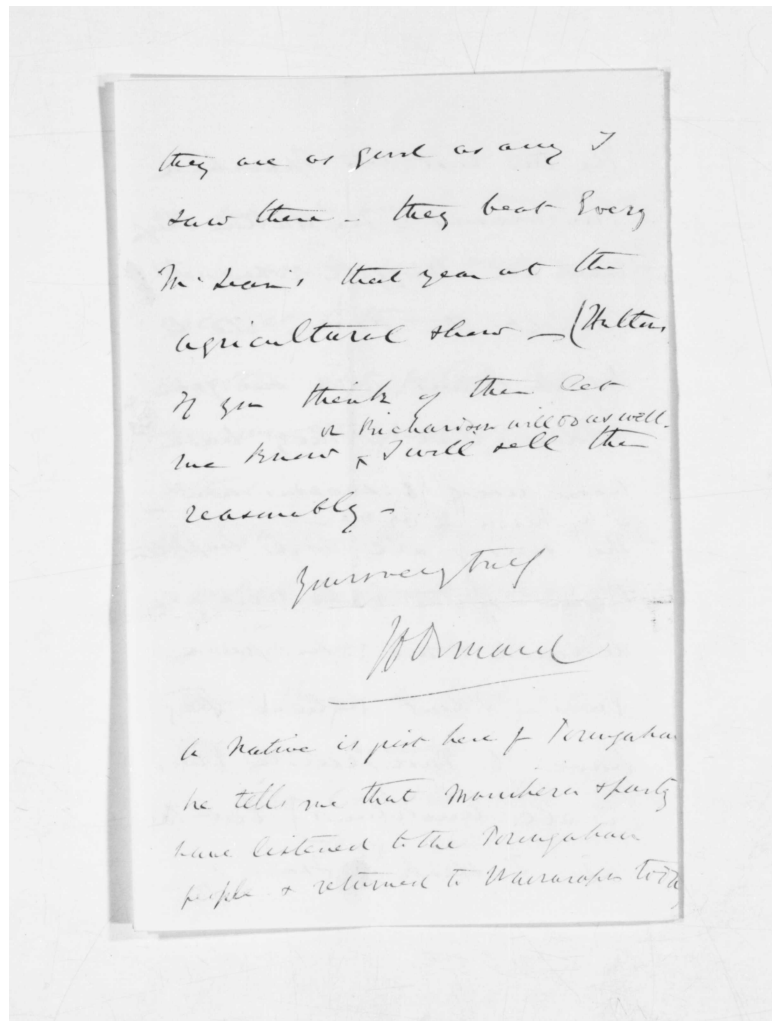 they are as good as any I
saw there - they beat Every
McLean's that year at the
agricultural show - (Hultons
If you think of them let
or Richardson will do as well.
me know & I will sell them
reasonably -
Yours very truly
JD Ormond
A Native is just here f Porangahau
he tells me that & party
have listened to the Porangahau
people & returned to Wairarapa today